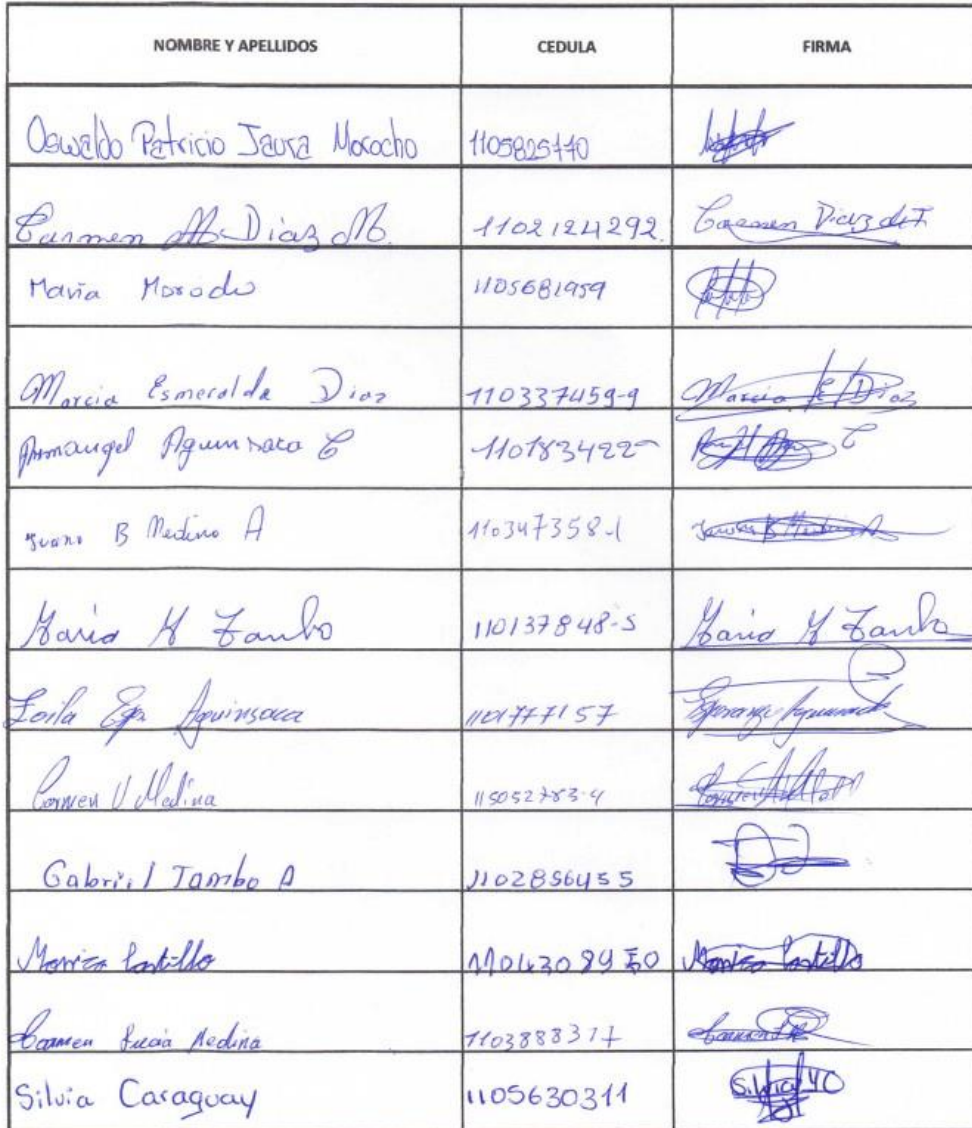 NOMBRE Y APELLIDOS CEDULA FIRMA
Oswaldo Patricio Jaura Morocho 1105825770
Carmen M. Diaz M. 1102124292 Carmen Diaz de T.
Maria Morocho 1105681959
Marcia Esmeralda Diaz 110337459-9 Marcia E Diaz
Aguinsaca C
B Medina A 110347358-1
Maria M Tambo 110137848-5 Maria M Tambo
Zoila Esp. Aguinsaca 1101777157 Esperanza Aguinsaca
Carmen V Medina 115052783-4
Gabriel Tambo A 1102856455
Castillo Castillo
Carmen Lucia Medina 1103888317
Silvia Caraguay 1105630311 Silvia YC